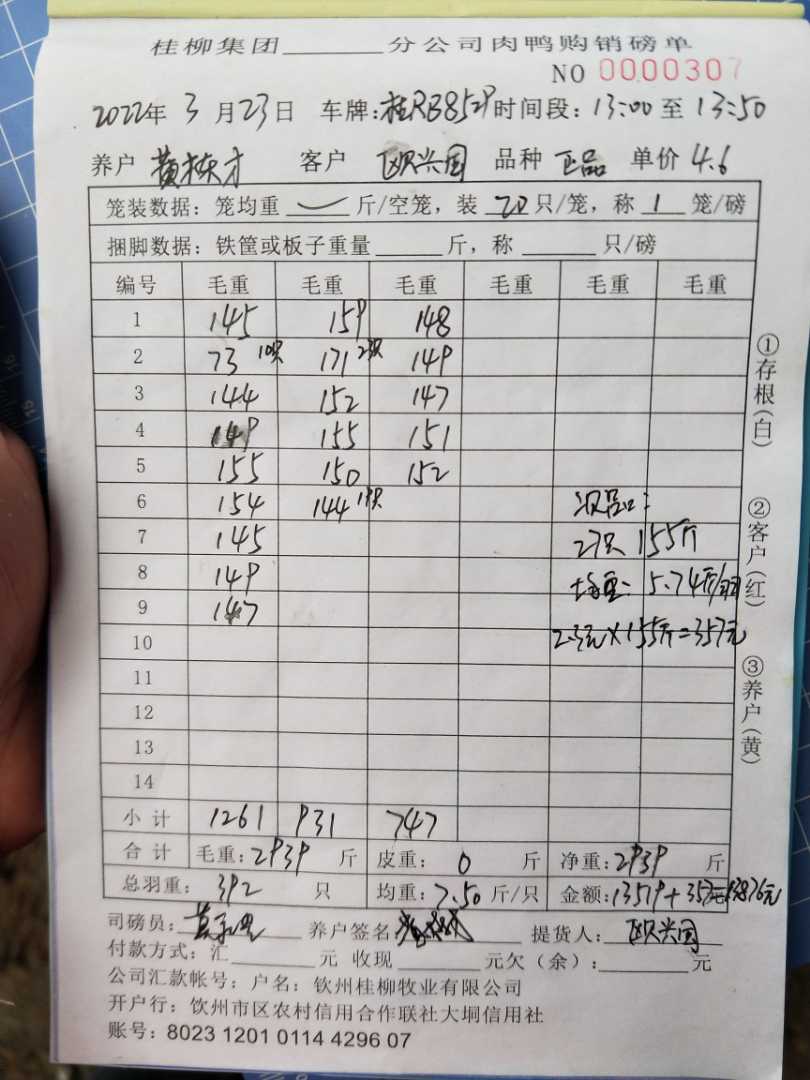 桂柳集团______分公司肉鸭购销磅单
NO 0000307
2022年 3 月 23日 车牌:桂RB8529 时间段: 13:00 至 13:50
养户 黄栋才 客户 欧兴国 品种 正品 单价 4.6
笼装数据：笼均重 斤/空笼，装 20 只/笼，称 1 笼/磅
捆脚数据：铁筐或板子重量______斤，称______只/磅
编号 毛重 毛重 毛重 毛重 毛重 毛重
1 145 159 148
2 73 10只 171 23只 149
3 144 152 147
4 149 155 151
5 155 150 152
6 154 144 19只
7 145 27只 155斤
8 149 均重: 5.74斤/羽
9 147
10 2.3元×155斤=357元
11
12
13
14
小计 1261 931 747
合计 毛重: 2939 斤 皮重: 0 斤 净重: 2939 斤
总羽重: 392 只 均重: 7.50 斤/只 金额: 13519+357=13876元
司磅员: 养户签名: 提货人: 欧兴国
付款方式: 汇______元 收现______元欠（余）:______元
公司汇款帐号：户名：钦州桂柳牧业有限公司
开户行：饮州市区农村信用合作联社大垌信用社
账号: 8023 1201 0114 4296 07
①存根(白)
②客户(红)
③养户(黄)